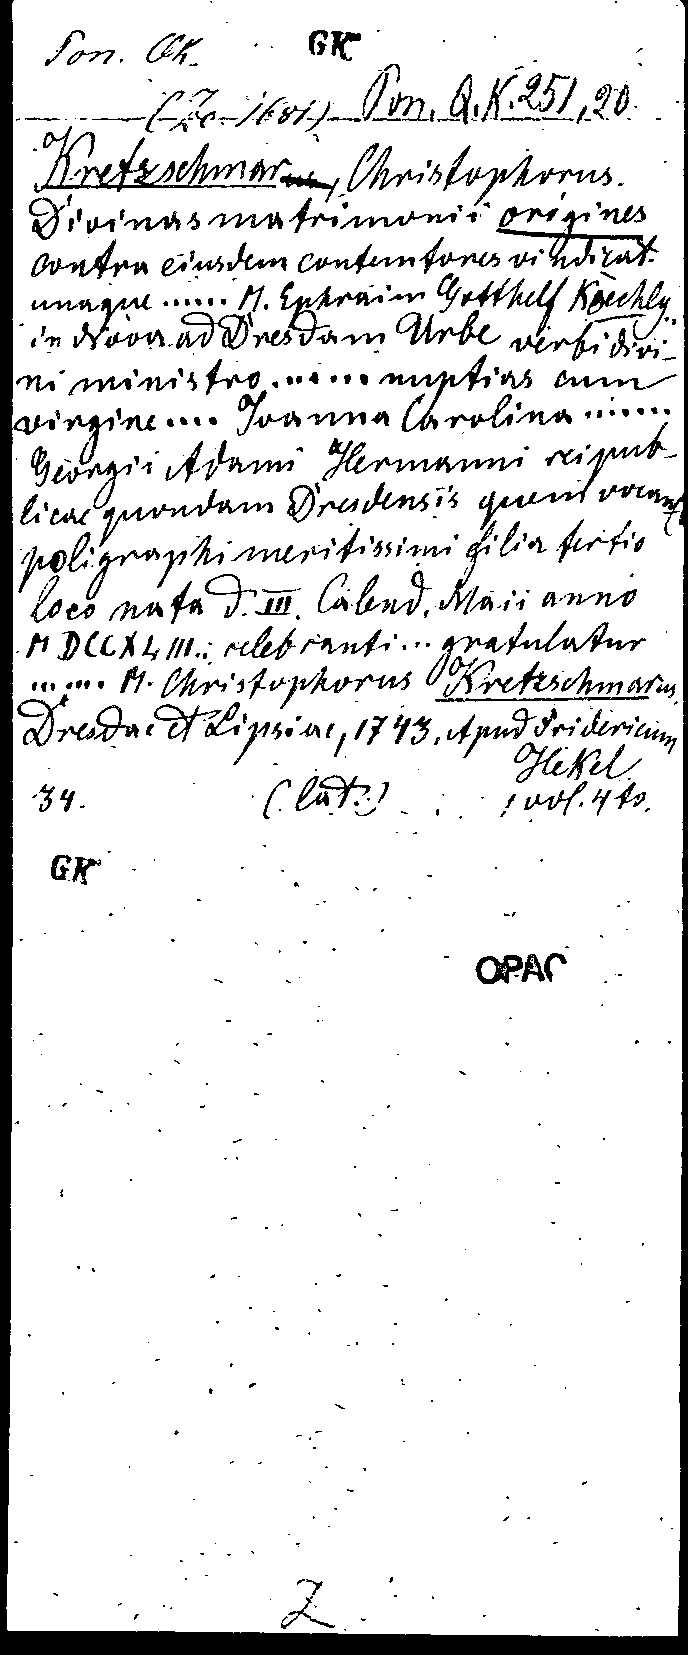 Pon. Qk. GK
(Zc 1681) Pon. Q.K. 251, 20.
Kretzschmar, Christophorus.
Divinas matrimonii origines
contra eiusdem contemtores vindicat
unaque ...... M. Ephraim Gotthelf Koechly
in Nova ad Dresdam Urbe verbi divi-
ni ministro ....... nuptias cum
virgine .... Joanna Carolina ......
Georgii Adami Hermanni reipub-
licae quondam Dresdensis quem vocant
poligraphi meritissimi filia tertio
loco nata d. III. Calend. Maii anno
MDCCXLIII.: celebranti ... gratulatur
...... M. Christophorus Kretzschmarus.
Dresdae et Lipsiae, 1743, Apud Fridericum
Hekel
34. (lat.) 1 vol. 4to.
GK
OPAC
Z